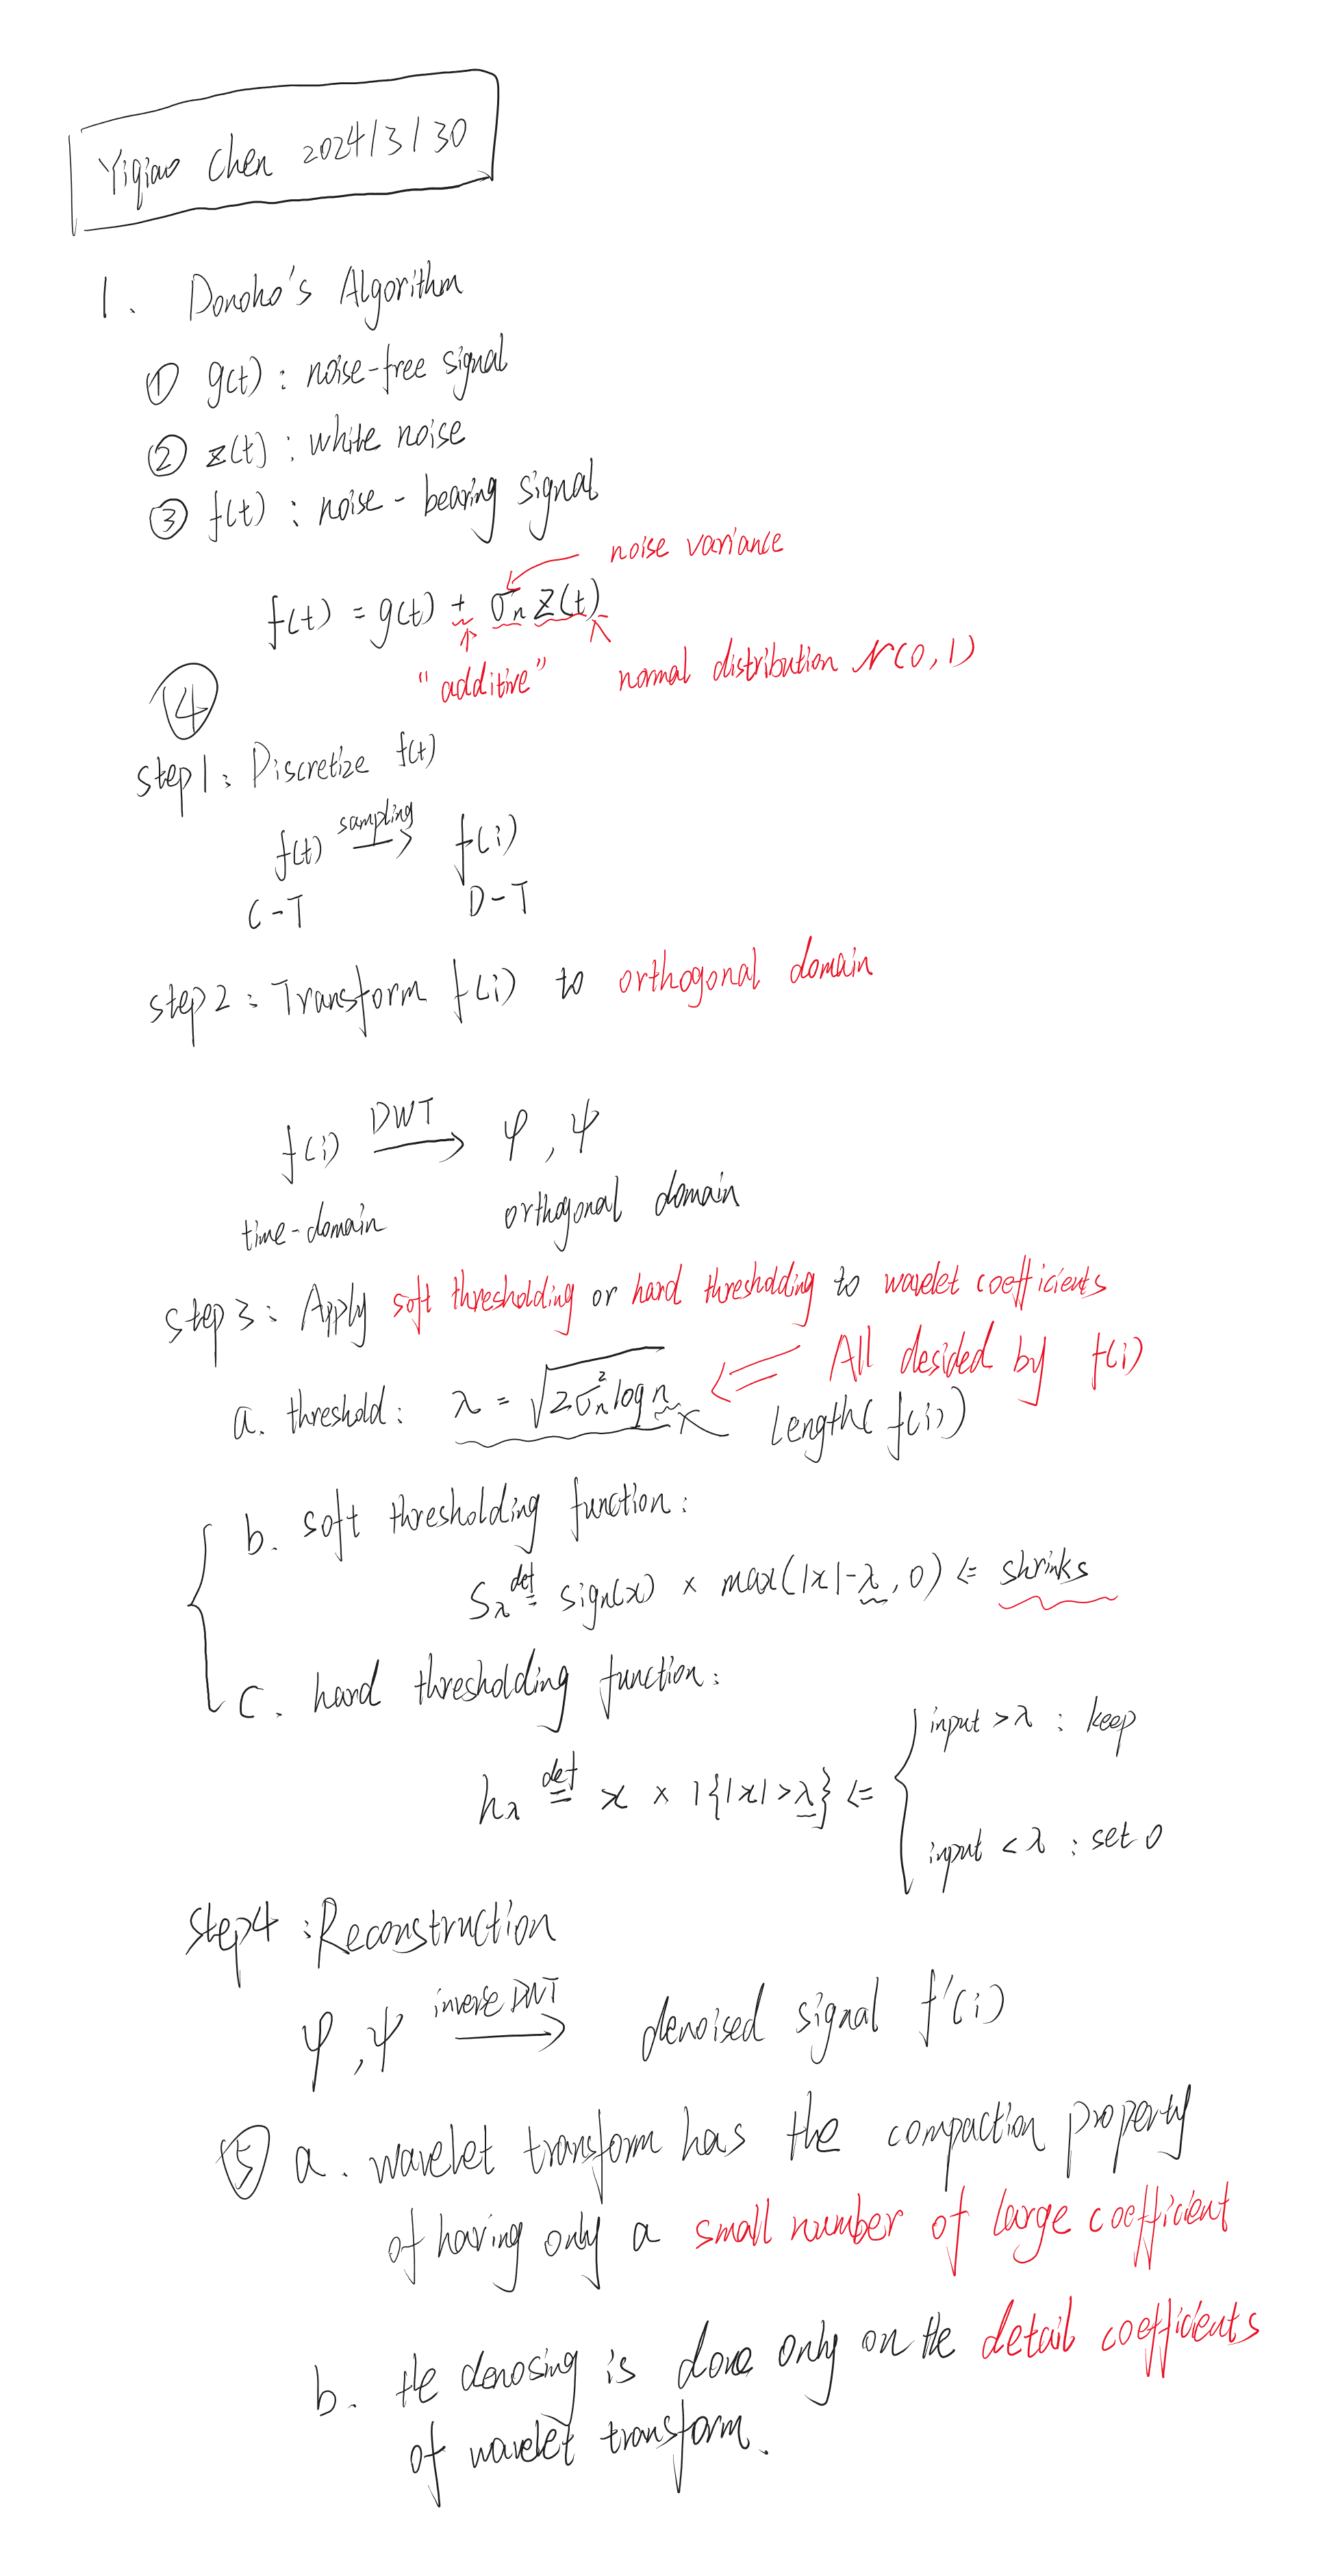 Yiqiao Chen 2024/3/30
1. Donoho's Algorithm
① g(t) : noise-free signal
② z(t) : white noise
③ f(t) : noise-bearing signal
noise variance
f(t) = g(t) + σₙ z(t)
"additive" normal distribution N(0,1)
④
step1: Discretize f(t)
f(t) sampling → f(i)
C-T D-T
step2: Transform f(i) to orthogonal domain
f(i) DWT → φ, ψ
time-domain orthogonal domain
step3: Apply soft thresholding or hard thresholding to wavelet coefficients
All desided by f(i)
a. threshold: λ = √(2σₙ² log n) Length(f(i))
b. soft thresholding function:
S_λ def= sign(x) × max(|x|-λ, 0) ⇐ shrinks
c. hard thresholding function:
input > λ : keep
h_λ def= x × 1{|x|>λ} ⇐
input < λ : set 0
step4: Reconstruction
φ, ψ inverse DWT → denoised signal f'(i)
⑤ a. wavelet transform has the compaction property
of having only a small number of large coefficient
b. the denosing is done only on the detail coefficients
of wavelet transform.